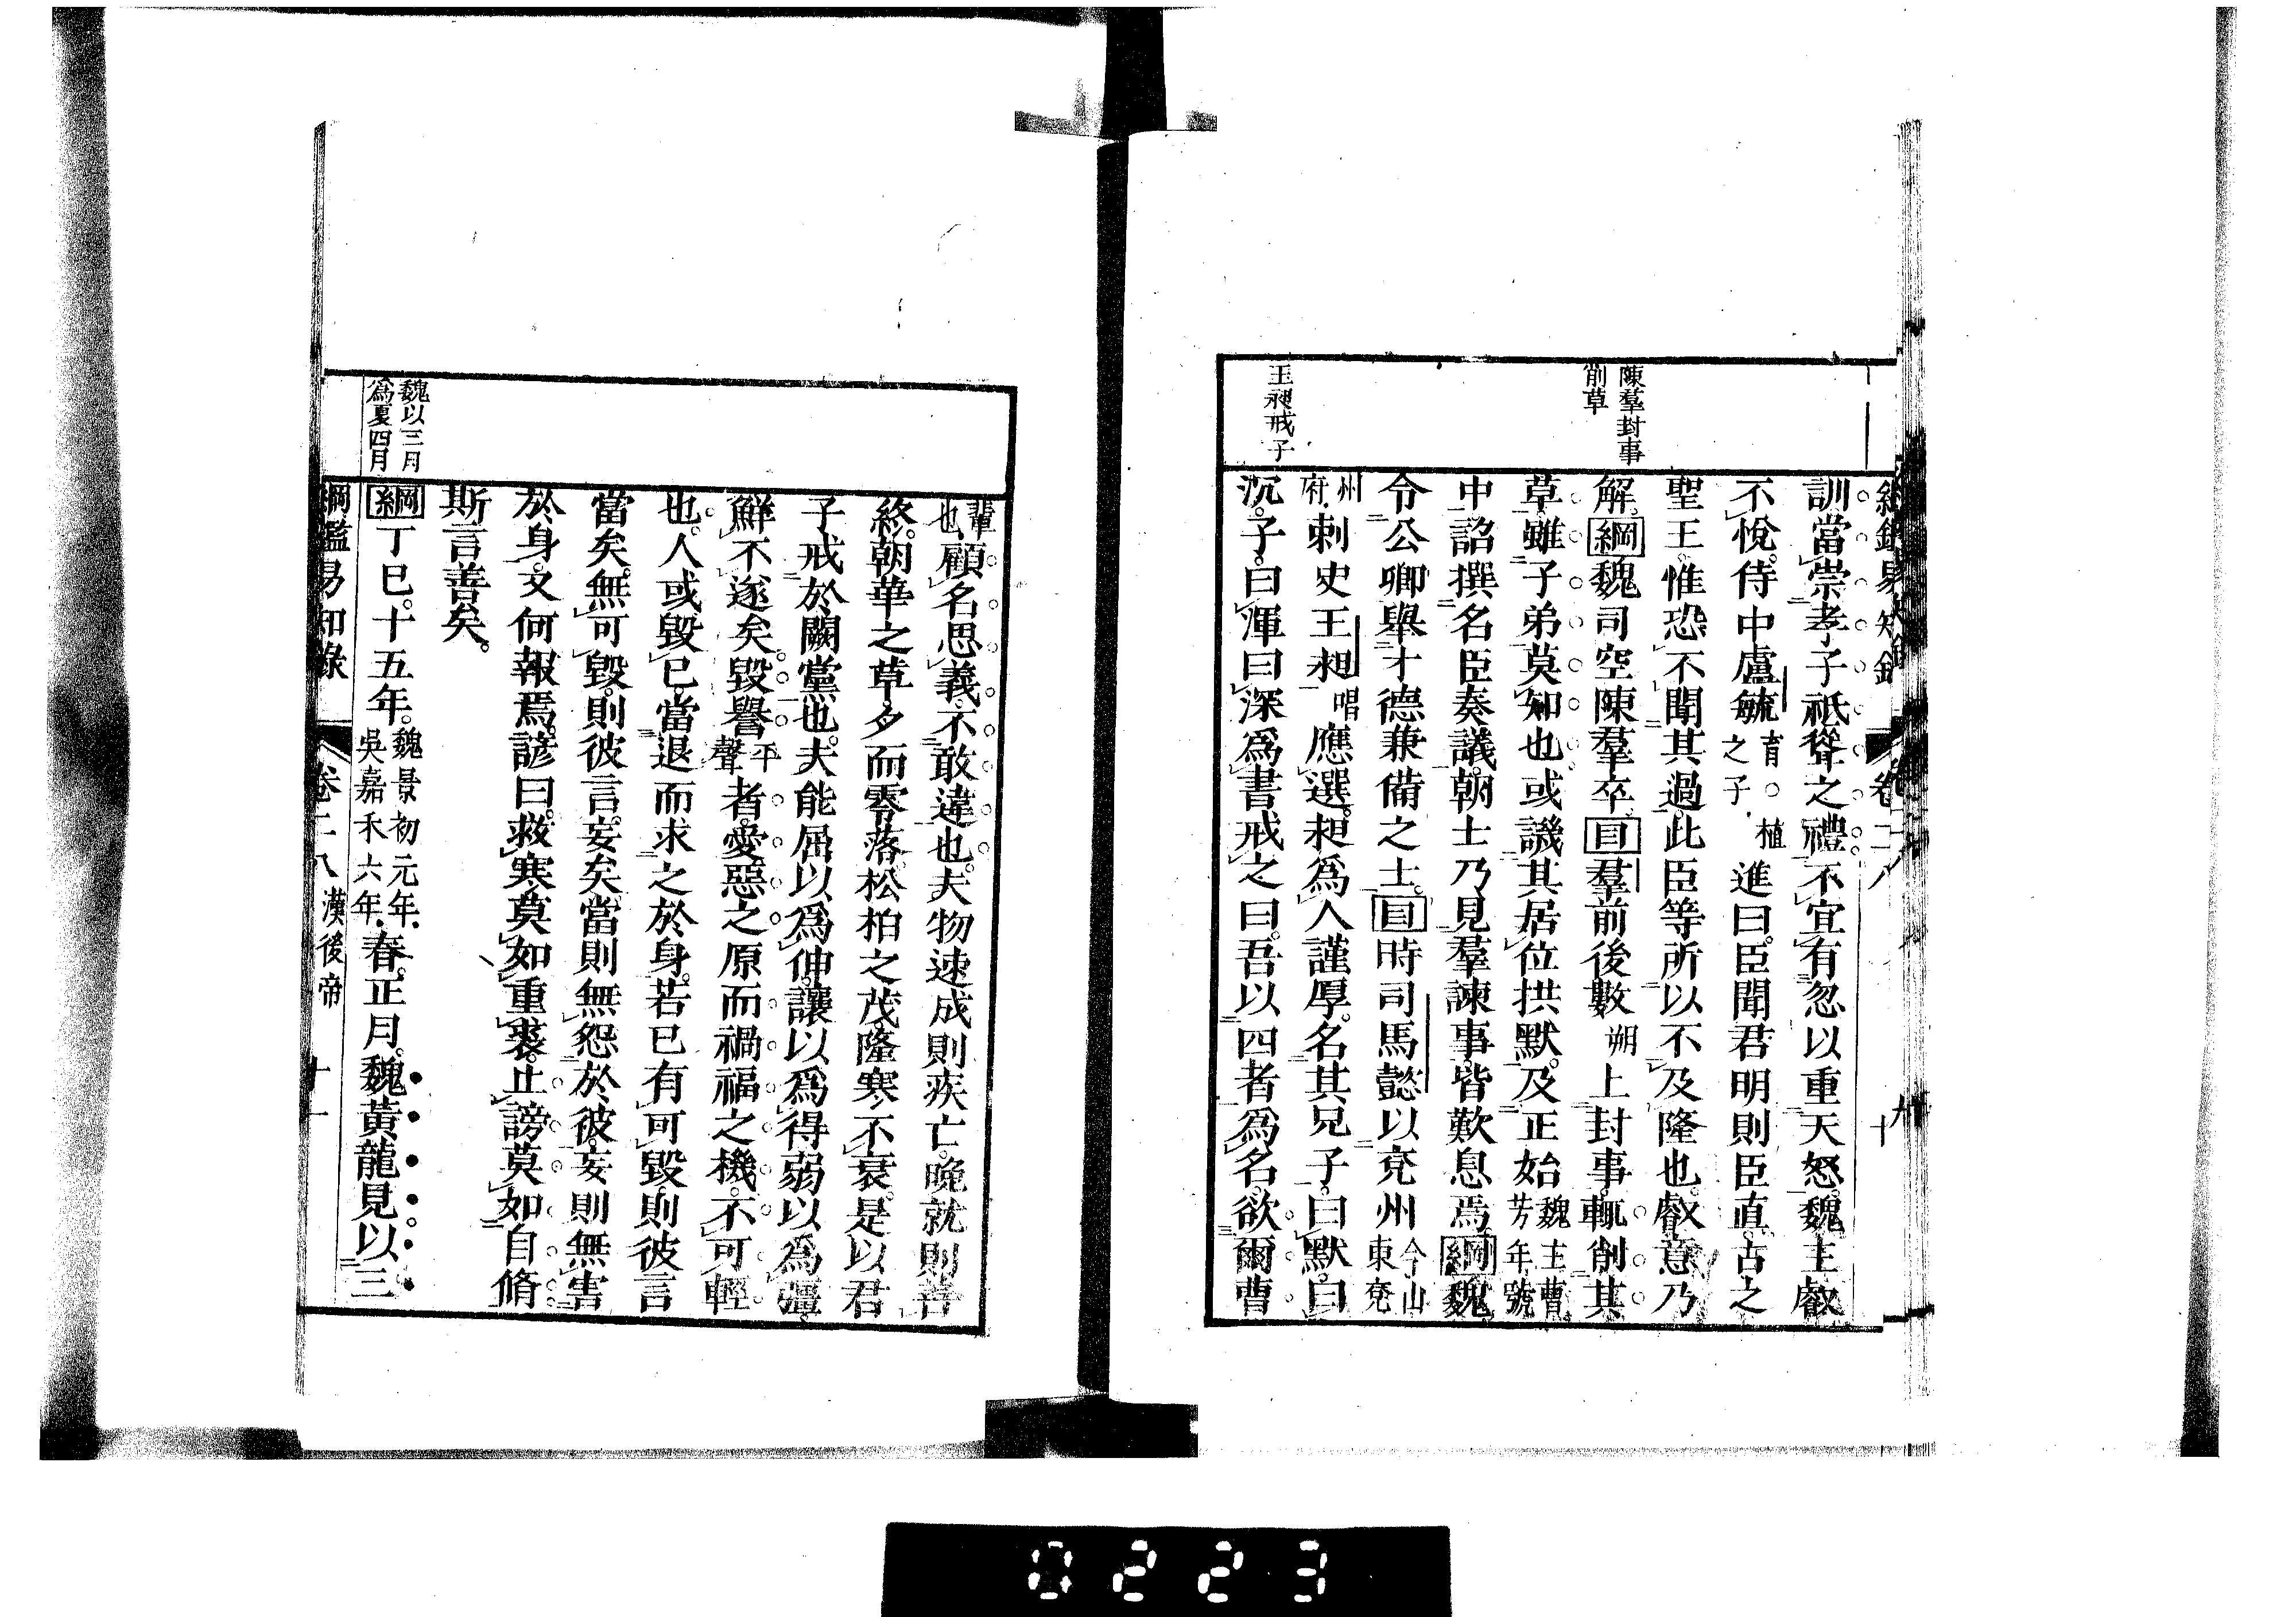 陳羣封事
削草
王昶戒子
訓當崇孝子祇聳之禮。不宜有忽以重天怒。魏主叡
不悅。侍中盧毓育。○植之子。進曰。臣聞君明則臣直。古之
聖王惟恐不聞其過。此臣等所以不及隆也。叡意乃
解。綱魏司空陳羣卒。目羣前後數朔上封事。輒削其
草。雖子弟莫知也。或譏其居位拱默。及正始魏主曹芳年號
中詔撰名臣奏議。朝士乃見羣諫事。皆歎息焉。綱魏
令公卿舉才德兼備之士。目時司馬懿以兗州今山東兗
州府.刺史王昶唱應選。昶爲人謹厚。名其兄子。曰默。曰
沉。子。曰渾曰深。爲書戒之曰。吾以四者爲名。欲爾曹
魏以三月
爲夏四月
輩也、顧名思義。不敢違也。夫物速成則疾亡。晚就則善
終。朝華之草。夕而零落。松柏之茂。隆寒不衰。是以君
子戒於闕黨也。夫能屈以爲伸。讓以爲得。弱以爲彊。
鮮不遂矣。毀譽平聲者。愛惡之原而禍福之機。不可輕
也。人或毀已。當退而求之於身。若已有可毀。則彼言
當矣。無可毀。則彼言妄矣。當則無怨於彼。妄則無害
於身。又何報焉。諺曰。救寒莫如重裘。止謗莫如自脩
斯言善矣。
綱丁巳。十五年。魏景初元年.吳嘉禾六年.春。正月。魏黃龍見。以三
綱鑑易知錄 卷二八 漢後帝 十一